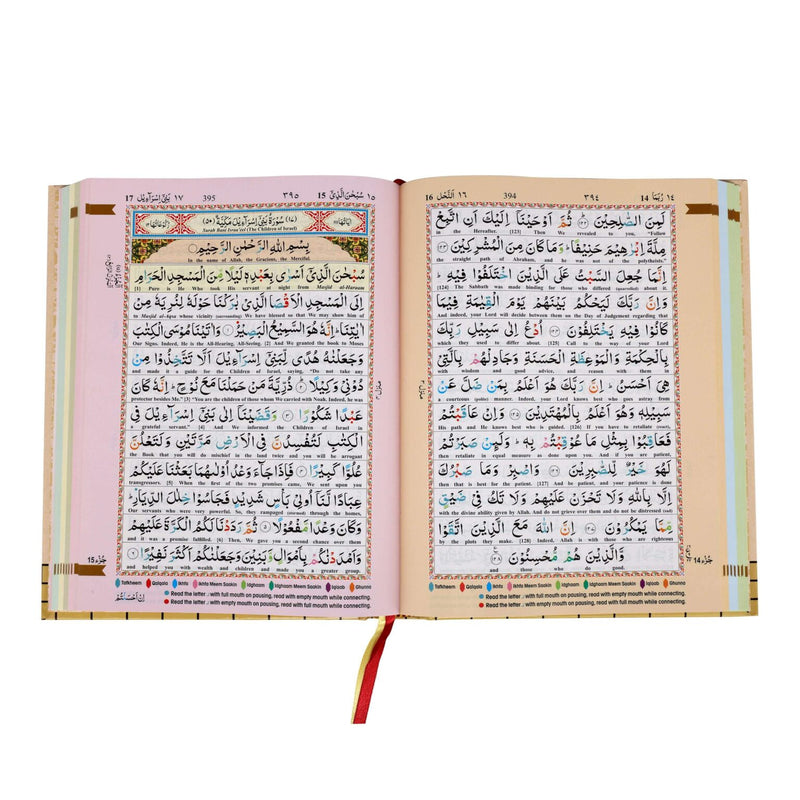 16 اَلنَّحۡل ١٦ 394 ٣٩٤ 14 رُبَمَا ١٤
لَمِنَ الصّٰلِحِيۡنَ ﴿١٢٢﴾ ثُمَّ اَوۡحَيۡنَاۤ اِلَيۡكَ اَنِ اتَّبِعۡ
in the Hereafter. [123] Then We revealed to you, "Follow
مِلَّةَ اِبۡرٰهِيۡمَ حَنِيۡفًا ؕ وَمَا كَانَ مِنَ الۡمُشۡرِكِيۡنَ ﴿١٢٣﴾
the straight path of Abraham, and he was not of the polytheists."
اِنَّمَا جُعِلَ السَّبۡتُ عَلَى الَّذِيۡنَ اخۡتَلَفُوۡا فِيۡهِ ؕ
[124] The Sabbath was made binding for those who differed (quarrelled) about it
وَاِنَّ رَبَّكَ لَيَحۡكُمُ بَيۡنَهُمۡ يَوۡمَ الۡقِيٰمَةِ فِيۡمَا
and indeed, your Lord will decide between them on the Day of Judgement regarding that
كَانُوۡا فِيۡهِ يَخۡتَلِفُوۡنَ ﴿١٢٤﴾ اُدۡعُ اِلٰى سَبِيۡلِ رَبِّكَ
which they used to differ about. [125] Call to the way of your Lord
بِالۡحِكۡمَةِ وَالۡمَوۡعِظَةِ الۡحَسَنَةِ وَجَادِلۡهُمۡ بِالَّتِىۡ
with wisdom and good advice, and reason with them in
هِىَ اَحۡسَنُ ؕ اِنَّ رَبَّكَ هُوَ اَعۡلَمُ بِمَنۡ ضَلَّ عَنۡ
a (polite) manner. Indeed, your Lord knows best who goes astray from
سَبِيۡلِهٖ وَهُوَ اَعۡلَمُ بِالۡمُهۡتَدِيۡنَ ﴿١٢٥﴾ وَاِنۡ عَاقَبۡتُمۡ
His path and He knows best who is guided. [126] If you have to retaliate (ever),
فَعَاقِبُوۡا بِمِثۡلِ مَا عُوۡقِبۡتُمۡ بِهٖ ؕ وَلَئِنۡ صَبَرۡتُمۡ
then retaliate in equal measure as done upon you. And if you are patient,
لَهُوَ خَيۡرٌ لِّلصّٰبِرِيۡنَ ﴿١٢٦﴾ وَاصۡبِرۡ وَمَا صَبۡرُكَ
then that is best for the patient. [127] And be patient, and your patience is done
اِلَّا بِاللّٰهِ وَلَا تَحۡزَنۡ عَلَيۡهِمۡ وَلَا تَكُ فِىۡ ضَيۡقٍ
with the divine ability given by Allah. And do not grieve over them and do not be distressed (sad)
مِّمَّا يَمۡكُرُوۡنَ ﴿١٢٧﴾ اِنَّ اللّٰهَ مَعَ الَّذِيۡنَ اتَّقَوۡا
by the plots they make. [128] Indeed, Allah is with those who are righteous
وَّالَّذِيۡنَ هُمۡ مُّحۡسِنُوۡنَ ﴿١٢٨﴾
those who do good.
جُزء 14
Tafkheem Qalqala Ikhfa Ikhfa Meem Saakin Idghaam Idghaam Meem Saakin Iqlaab Ghunna
Read the letter ر with full mouth on pausing, read with empty mouth while connecting.
Read the letter ر with full mouth on pausing, read with empty mouth while connecting.
17 بَنِىۡۤ اِسۡرَآءِيۡل ١٧ 395 ٣٩٥ 15 سُبۡحٰنَ الَّذِىۡۤ ١٥
(١٧) سُوۡرَةُ بَنِىۡۤ اِسۡرَآءِيۡلَ مَكِّيَّةٌ (٥٠)
Surah Bani Israa'eel (The Children of Israel)
بِسۡمِ اللّٰهِ الرَّحۡمٰنِ الرَّحِيۡمِ
In the name of Allah, the Gracious, the Merciful.
سُبۡحٰنَ الَّذِىۡۤ اَسۡرٰى بِعَبۡدِهٖ لَيۡلًا مِّنَ الۡمَسۡجِدِ الۡحَرَامِ
[1] Pure is He Who took His servant at night from Masjid al-Haraam
اِلَى الۡمَسۡجِدِ الۡاَقۡصَا الَّذِىۡ بٰرَكۡنَا حَوۡلَهٗ لِنُرِيَهٗ مِنۡ
to Masjid al-Aqsa whose vicinity (surrounding) We have blessed so that We may show him of
اٰيٰتِنَا ؕ اِنَّهٗ هُوَ السَّمِيۡعُ الۡبَصِيۡرُ ﴿١﴾ وَاٰتَيۡنَا مُوۡسَى الۡكِتٰبَ
Our Signs. Indeed, He is the All-Hearing, All-Seeing. [2] And We granted the book to Moses
وَجَعَلۡنٰهُ هُدًى لِّبَنِىۡۤ اِسۡرَآءِيۡلَ اَلَّا تَتَّخِذُوۡا مِنۡ
and made it a guide for the Children of Israel, saying, "Do not take any
دُوۡنِىۡ وَكِيۡلًا ﴿٢﴾ ذُرِّيَّةَ مَنۡ حَمَلۡنَا مَعَ نُوۡحٍ ؕ اِنَّهٗ كَانَ
protector besides Me." [3] You are the children of those whom We carried with Noah. Indeed, he was
عَبۡدًا شَكُوۡرًا ﴿٣﴾ وَقَضَيۡنَاۤ اِلٰى بَنِىۡۤ اِسۡرَآءِيۡلَ فِى
a grateful servant. [4] And We informed the Children of Israel in
الۡكِتٰبِ لَتُفۡسِدُنَّ فِى الۡاَرۡضِ مَرَّتَيۡنِ وَلَتَعۡلُنَّ
the Book that you will do mischief in the land twice and you will be arrogant
عُلُوًّا كَبِيۡرًا ﴿٤﴾ فَاِذَا جَآءَ وَعۡدُ اُوۡلٰٮهُمَا بَعَثۡنَا عَلَيۡكُمۡ
transgressors. [5] When the first of the two promises came, We sent upon you
عِبَادًا لَّنَاۤ اُولِىۡ بَاۡسٍ شَدِيۡدٍ فَجَاسُوۡا خِلٰلَ الدِّيَارِ ؕ
Our servants who were very powerful. So, they rampaged (entered) through the homes,
وَكَانَ وَعۡدًا مَّفۡعُوۡلًا ﴿٥﴾ ثُمَّ رَدَدۡنَا لَكُمُ الۡكَرَّةَ عَلَيۡهِمۡ
and it was a promise fulfilled. [6] Then, We gave you a second chance over them
وَاَمۡدَدۡنٰكُمۡ بِاَمۡوَالٍ وَّبَنِيۡنَ وَجَعَلۡنٰكُمۡ اَكۡثَرَ نَفِيۡرًا ﴿٦﴾
and helped you with wealth and children and made you a greater group.
15 جُزء
Tafkheem Qalqala Ikhfa Ikhfa Meem Saakin Idghaam Idghaam Meem Saakin Iqlaab Ghunna
اِنۡ اَحۡسَنۡتُمۡ
Read the letter ر with full mouth on pausing, read with empty mouth while connecting.
Read the letter ر with full mouth on pausing, read with empty mouth while connecting.